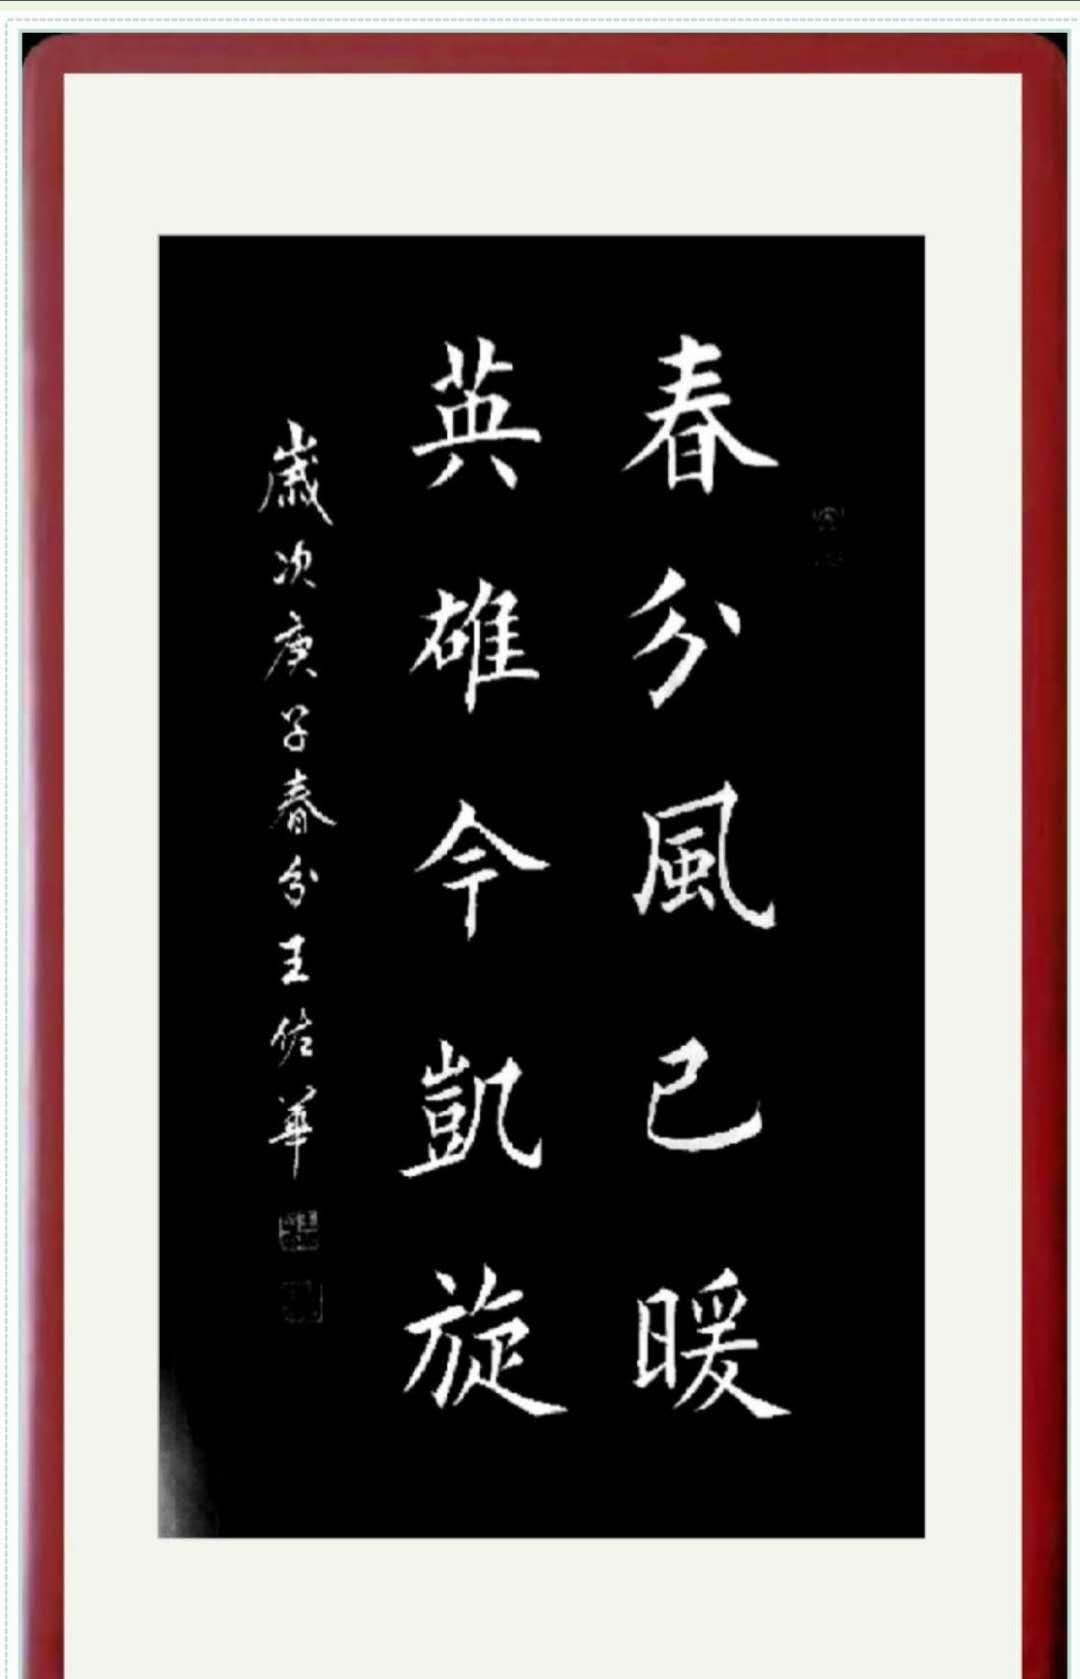 春分風已暖
英雄今凱旋
歲次庚子春分王佐華